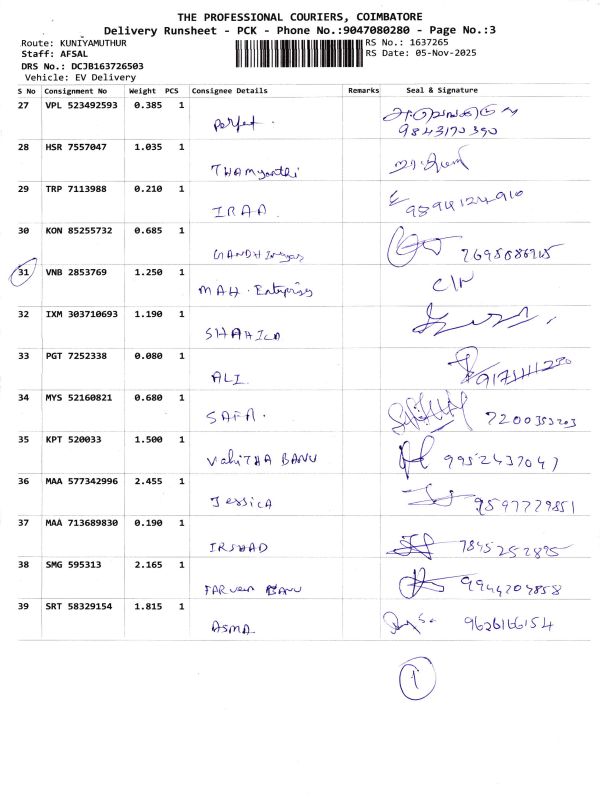 THE PROFESSIONAL COURIERS, COIMBATORE
Delivery Runsheet - PCK - Phone No.:9047080280 - Page No.:3
Route: KUNIYAMUTHUR RS No.: 1637265
Staff: AFSAL RS Date: 05-Nov-2025
DRS No.: DCJB163726503
Vehicle: EV Delivery
S No Consignment No Weight PCS Consignee Details Remarks Seal & Signature
27 VPL 523492593 0.385 1
Perfet. 9843170390
28 HSR 7557047 1.035 1
THAMyanthi
29 TRP 7113988 0.210 1
IRAA 9594124910
30 KON 85255732 0.685 1
GANDHI 7695686915
31 VNB 2853769 1.250 1 C/N
MAH. Enterprises
32 IXM 303710693 1.190 1
SHAHILA
33 PGT 7252338 0.080 1
ALI
34 MYS 52160821 0.680 1
SAFA. 7200353203
35 KPT 520033 1.500 1
VahiTHA BANU 9952437047
36 MAA 577342996 2.455 1
Jessica 9597729851
37 MAA 713689830 0.190 1
IRSHAD 7845252875
38 SMG 595313 2.165 1
FARveen BANU 9944204858
39 SRT 58329154 1.815 1
ASMA 9626166154
1